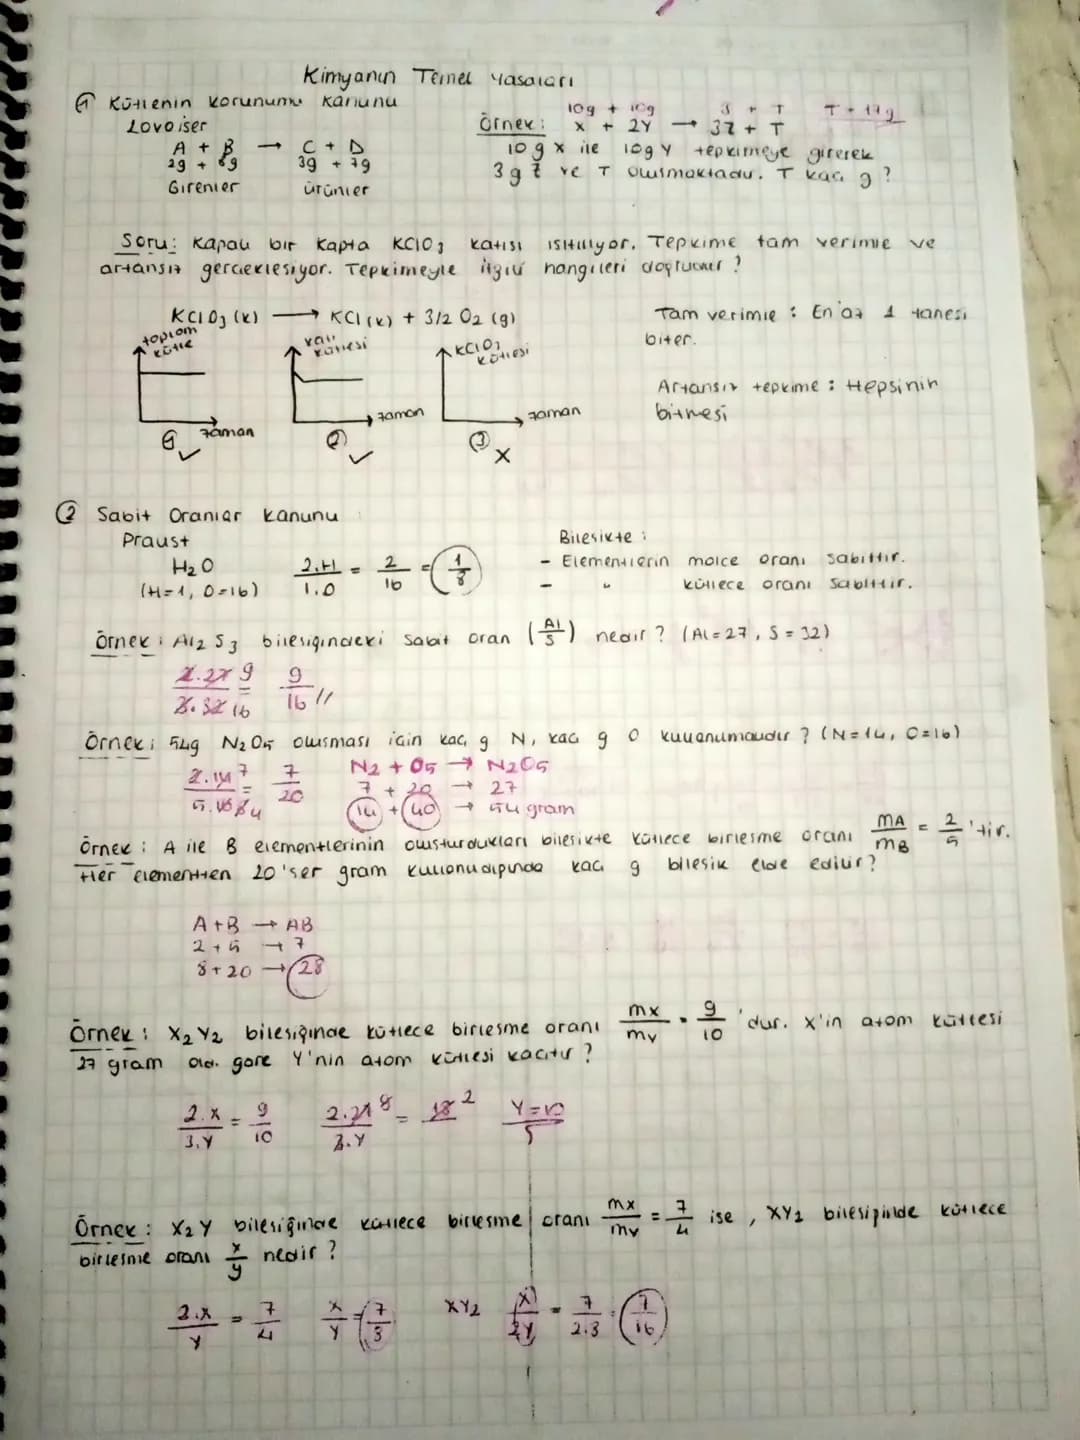 Kimyanın Temel Yasaları
① Kütlenin Korunumu Kanunu
Lovoiser
A + B → C + D
2g + 8g 3g + 7g
Girenler Ürünler
10g + 10g 3 + T T = 17g
Örnek: X + 2Y → 3Z + T
10 g X ile 10g Y tepkimeye girerek
3 g Z ve T oluşmaktadır. T kaç g ?
Soru: Kapalı bir kapta KClO3 katısı ısıtılıyor. Tepkime tam verimle ve
artansız gerçekleşiyor. Tepkimeyle ilgili hangileri doğrudur ?
KClO3 (k) → KCl (k) + 3/2 O2 (g)
Tam verimle : En az 1 tanesi
biter.
Artansız tepkime : Hepsinin
bitmesi
toplam kütle
zaman
① ✓
katı kütlesi
zaman
② ✓
KClO3 kütlesi
zaman
③ X
② Sabit Oranlar Kanunu
Praust
H2O 2.H/1.O = 2/16 = 1/8
(H=1, O=16)
Bileşikte :
- Elementlerin molce oranı sabittir.
- " kütlece oranı sabittir.
Örnek : Al2S3 bileşiğindeki sabit oran (Al/S) nedir ? (Al=27, S=32)
2.27/3.32 = 9/16 9/16 //
Örnek : 54g N2O5 oluşması için kaç g N, kaç g O kullanılmalıdır ? (N=14, O=16)
2.14/5.16 = 7/20
N2 + O5 → N2O5
7 + 20 → 27
14 + 40 → 54 gram
Örnek : A ile B elementlerinin oluşturdukları bileşikte kütlece birleşme oranı mA/mB = 2/5 'tir.
Her elementten 20'şer gram kullanıldığında kaç g bileşik elde edilir?
A + B → AB
2 + 5 → 7
8 + 20 → 28
Örnek : X2Y2 bileşiğinde kütlece birleşme oranı mX/mY = 9/10 'dur. X'in atom kütlesi
27 gram old. göre Y'nin atom kütlesi kaçtır ?
2.X/3.Y = 9/10 2.27/3.Y = Y=10
Örnek : X2Y bileşiğinde kütlece birleşme oranı mX/mY = 7/4 ise , XY2 bileşiğinde kütlece
birleşme oranı x/y nedir ?
2.X/Y = 7/4 X/Y = 7/8 XY2 X/2Y = 7/2.8 = 7/16